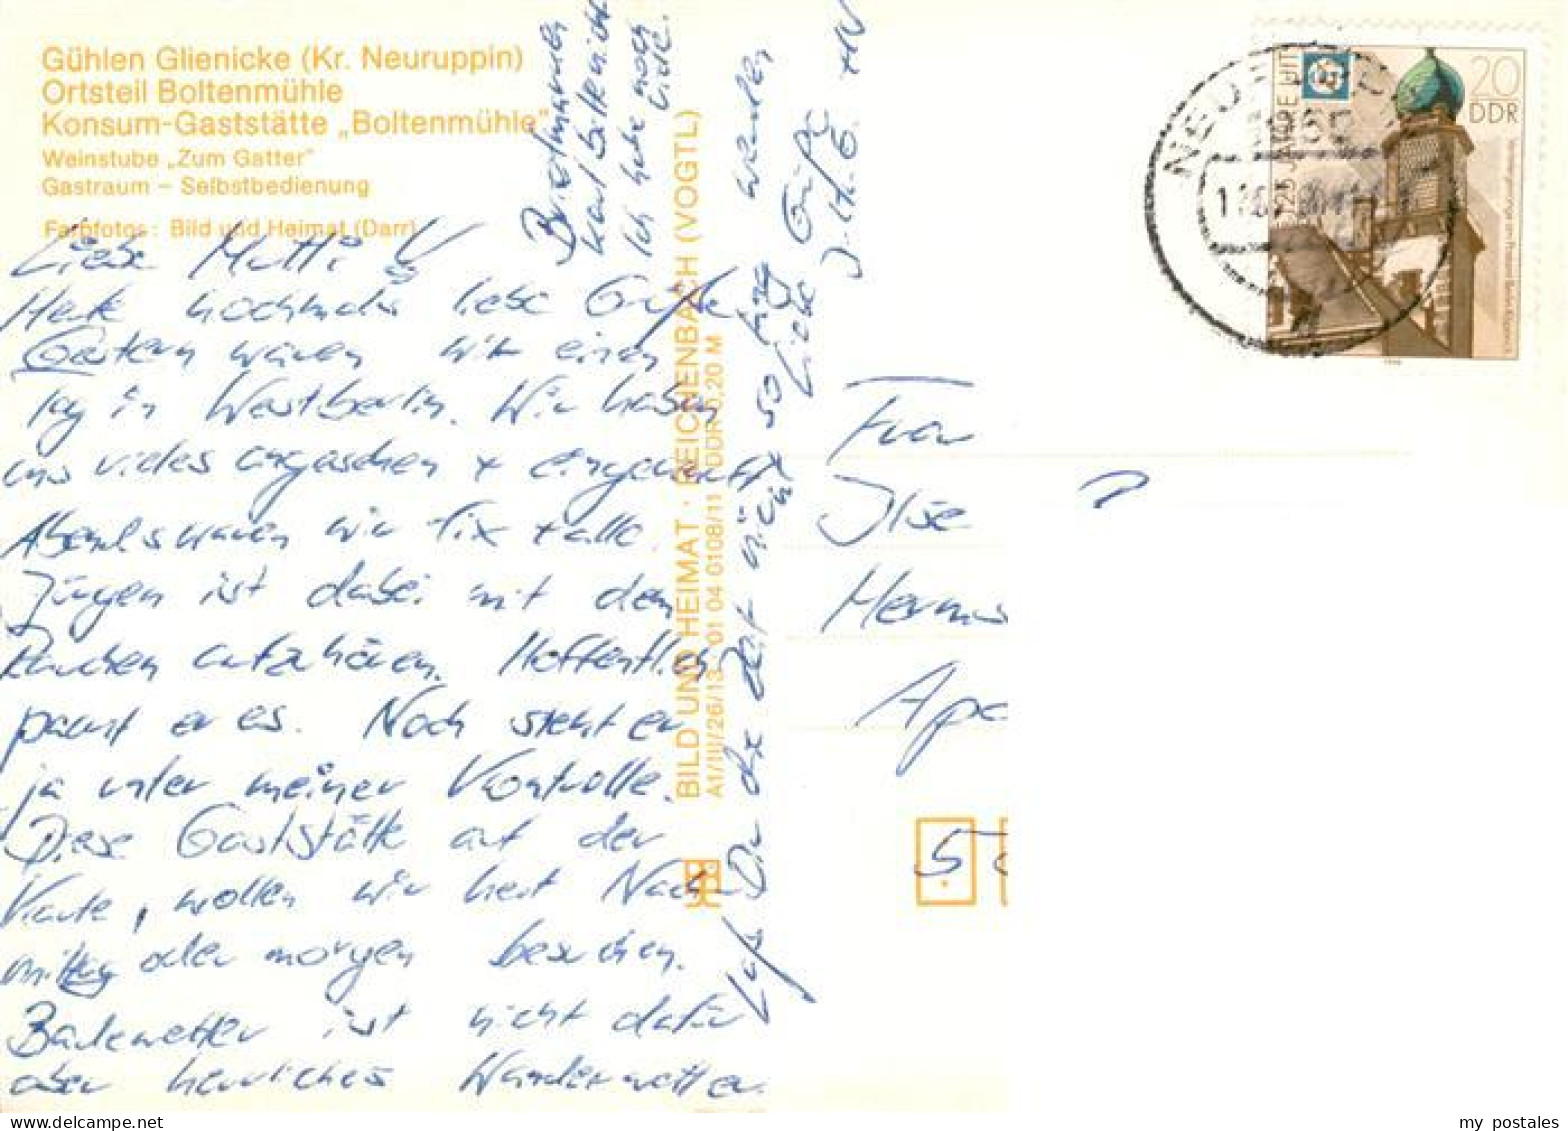 Gühlen Glienicke (Kr. Neuruppin)
Ortsteil Boltenmühle
Konsum-Gaststätte „Boltenmühle"
Weinstube „Zum Gatter"
Gastraum – Selbstbedienung
Farbfotos: Bild und Heimat (Darr)
Liebe Mutti!
Heute nochmals liebe Grüße
Gestern waren wir einen
Tag in Westberlin. Wir haben
uns vieles angesehen + eingekauft
Abends waren wir fix + alle.
Jürgen ist dabei mit dem
Rauchen aufzuhören. Hoffentlich
packt er es. Noch steht er
ja unter meiner Kontrolle.
Diese Gaststätte auf der
Karte, wollen wir heut Nach-
mittag oder morgen besuchen.
Badewetter ist nicht dafür
aber herrliches Wanderwetter.
Laß Dir die Zeit nicht so lang
werden
Liebe Grüße
Briefmarke
Ich habe noch
viele.
BILD UND HEIMAT · REICHENBACH (VOGTL)
A1/III/26/13 01 04 0108/11 DDR 0,20 M
20
DDR
Frau
Ilse
5
my postales